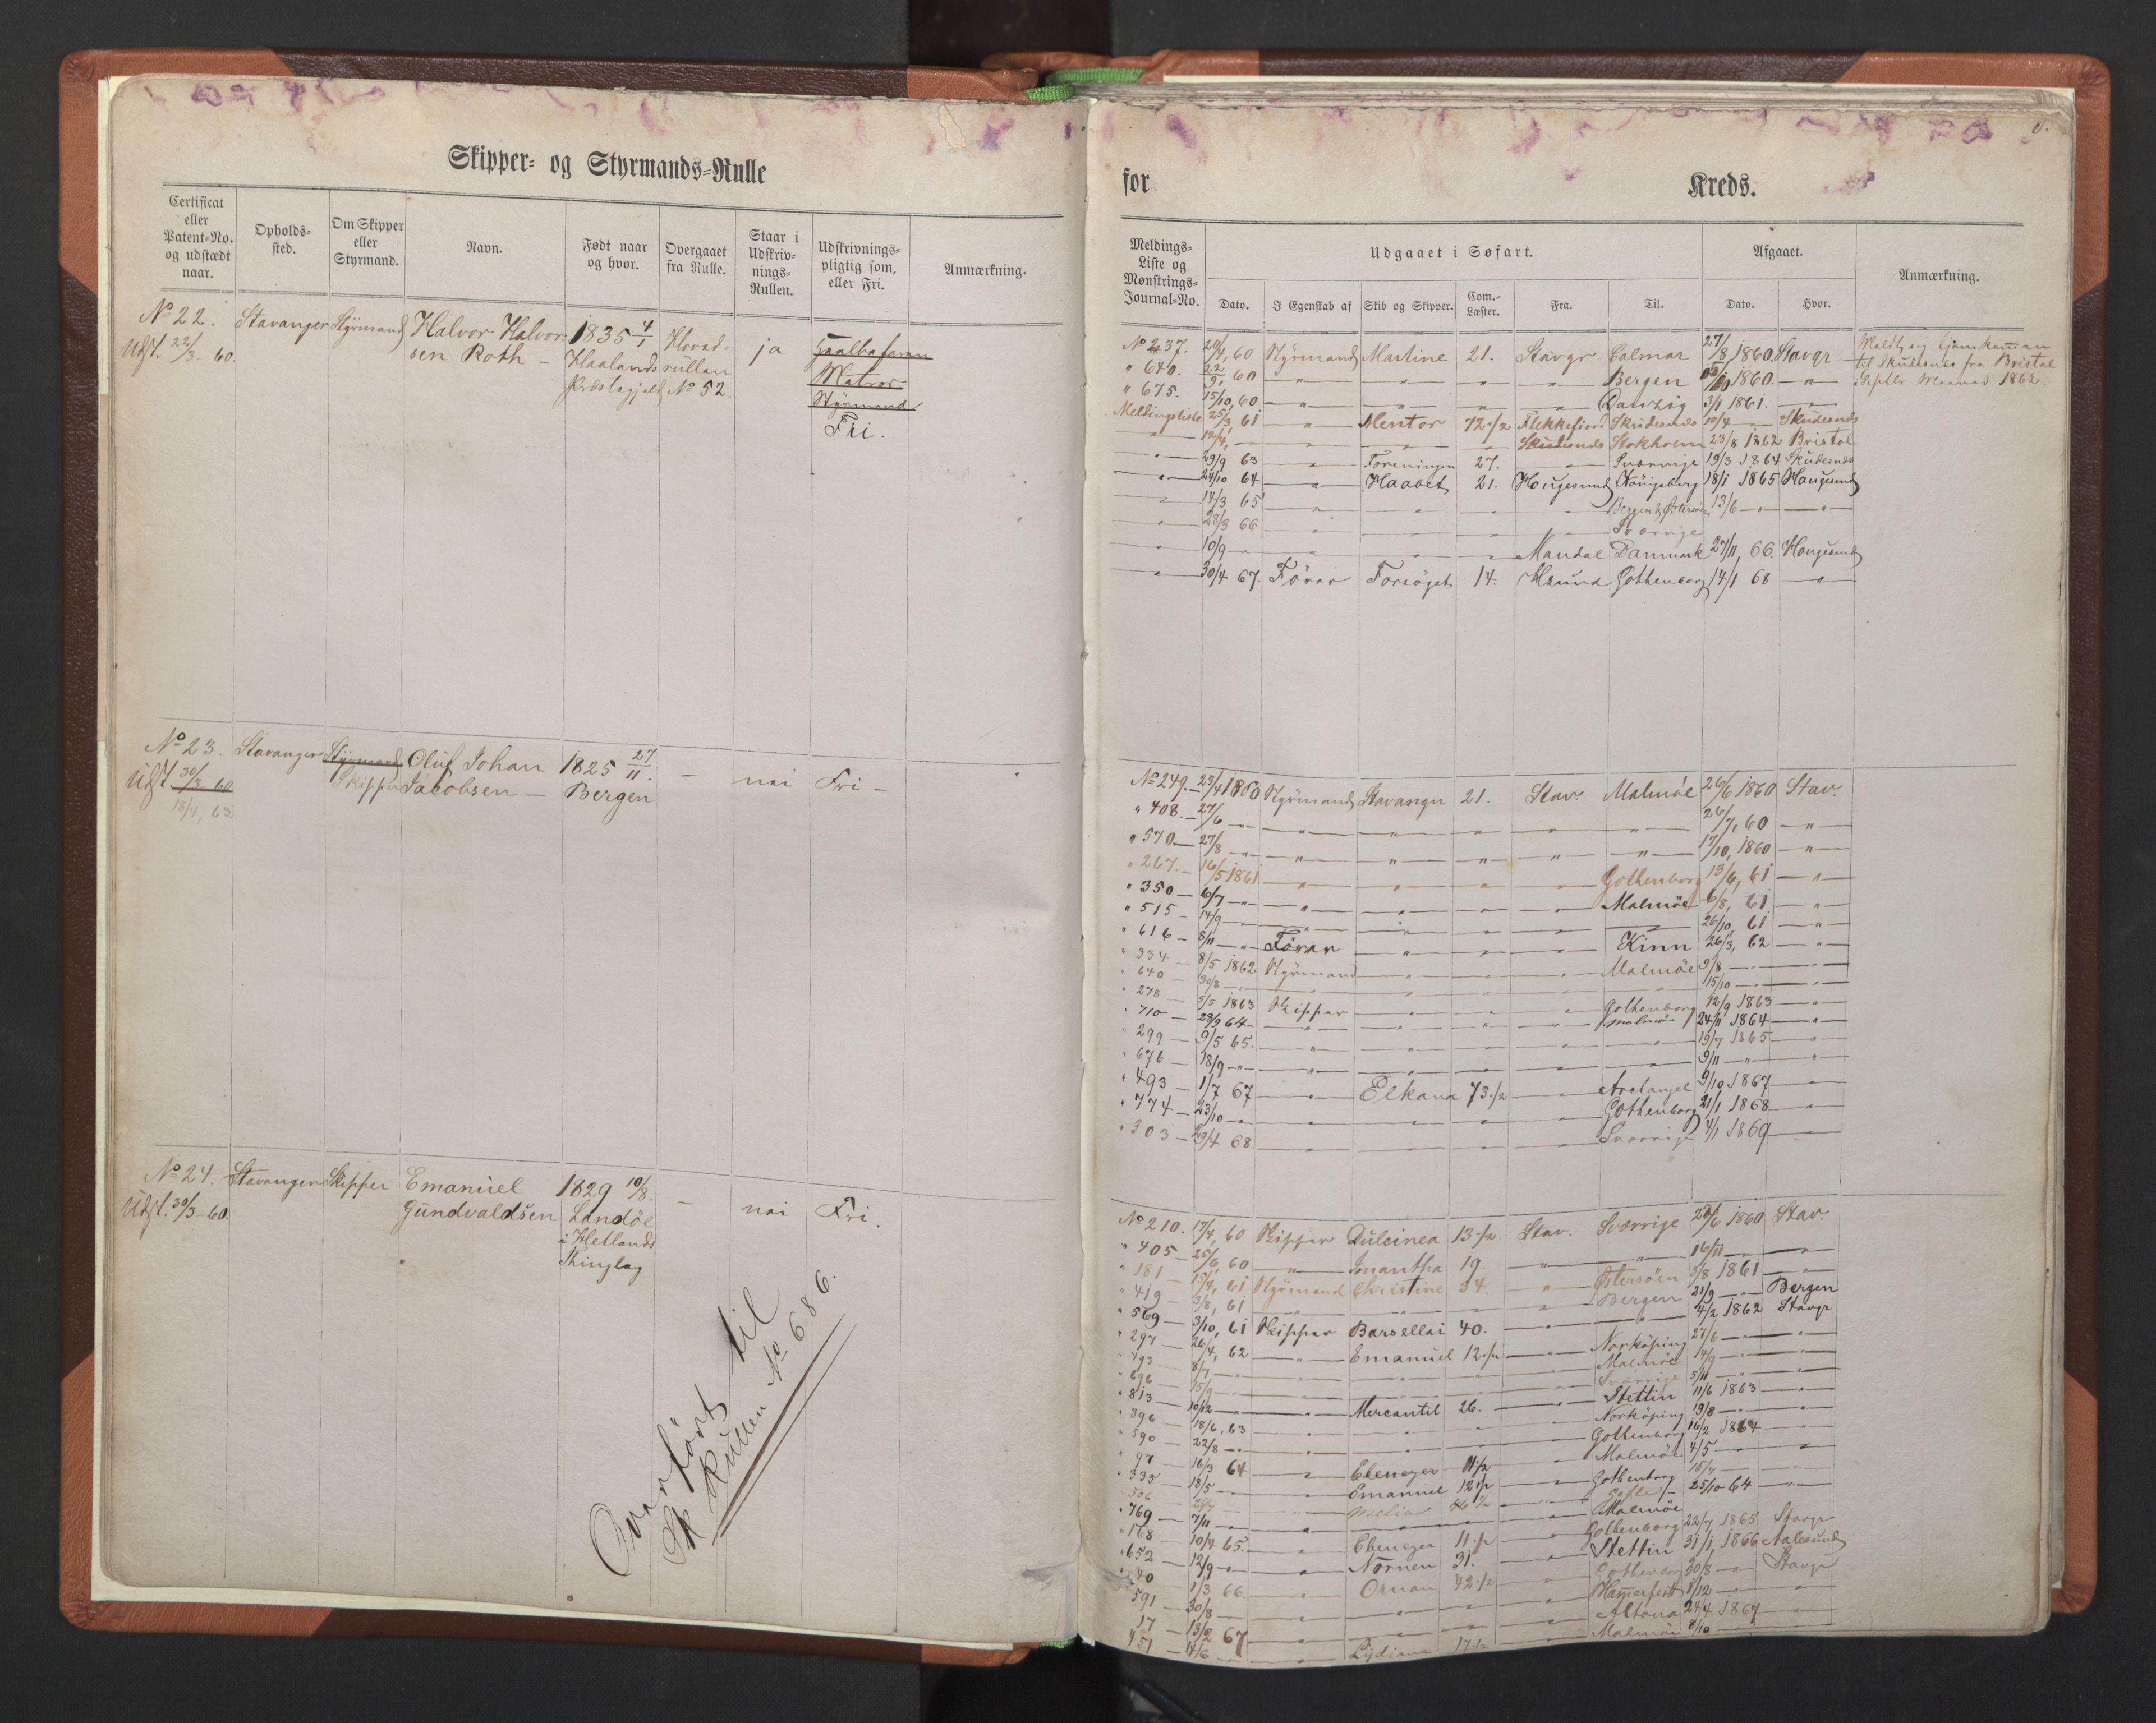 Skipper- og Styrmands-Rulle
Certificat eller Patent-No. og udstædt naar.
Opholds-sted.
Om Skipper eller Styrmand.
Navn.
Født naar og hvor.
Overgaaet fra Rulle.
Staar i Udskriv-nings-Rullen.
Udskrivnings-pligtig som, eller Fri.
Anmærkning.
No 22. Stavanger Styrmand Halvor Halvor- 1835 4/1 Hoved- ja
Udst. 22/3 60. sen Roth — Haalands rullen Matros
Præstegjeld No 52. Styrmand
Fri.
No 23. Stavanger Styrmand Oluf Johan 1825 27/11. — nei Fri —
Udst 30/3 60 Skipper Jacobsen — Bergen
18/4, 63.
No 24. Stavanger Skipper Emanuel 1829 10/8. — nei Fri.
Udst. 30/3 60. Gundvaldsen Landöe
i Hetlands
Thinglag
Overfört til
Sk Rullen No 686.
for Kreds.
Meldings-Liste og Mønstrings-Journal-No.
Udgaaet i Søfart.
Afgaaet.
Anmærkning.
Dato. I Egenskab af Skib og Skipper. Com.-Læster. Fra. Til. Dato. Hvor.
No 237. 20/4, 60 Styrmand Martine 21. Stavgr Calmar 27/8 1860 Stavgr
" 640. 22/9, 60 " " " " Bergen 1860. "
til Skudesnes fra Bristol
" 675. 15/10, 60 " " " " Danzig 3/1 1861.
Maaned 1862.
Meldingsliste 25/3, 61 " Mentor 72 1/2 Flekkefiord Skudesnes 10/4 — Skudesnes
" 12/4, — Skudesnes Stokholm 23/8 1862 Bristol
" 29/9 63 " Foreningen 27. " Sverrige 19/3 1864 Skudesnes
" 24/10 64 " Haabet 21. Hougesund Königsberg 18/1 1865 Haugesund
" 14/3 65 " " " " Bergen & Østersøen 13/6 — "
" 28/3 66 " " " " Sverrige
" 10/9 — " " " Mandal Danmark 27/11, 66. Hougesund
" 30/4 67. Förer Forsöget 14. Hsund Gothenborg 14/1 68 "
No 249. 23/4 1860 Styrmand Stavanger 21. Stav. Malmöe 26/6 1860 Stav.
" 408. 27/6 — " " " " " 26/7, 60 "
" 570 27/8 — " " " " " 17/10, 1860 "
" 267. 16/5 1861 " " " " Gothenborg 13/6, 61 "
" 350 6/7 — " " " " Malmöe 6/8, 61 "
" 515 14/9 — " " " " " 26/10, 61 "
" 616 8/11 — Förer " " " Kinn 26/3, 62 "
" 334 8/5 1862 Styrmand " " " Malmöe 9/8 — "
" 640 30/8 — " " " " " 15/10 — "
" 278 5/5 1863 Skipper " " " Gothenborg 12/9 1863 "
" 710 28/9 64 " " " " Malmöe 24/11 1864 "
" 299 9/5 65. " " " " " 19/7 1865 "
" 676 18/9 — " " " " " 9/11 — "
" 493 1/7 67 " Elkana 73 1/2 " Archangel 9/10 1867 "
" 774 23/10 — " " " " Gothenborg 21/1 1868 "
" 303 29/4 68 " " " " Sverrige 4/1 1869 "
No 210. 17/4, 60 Skipper Dulcinea 13 1/2 Stav. Sverrige 1860 Stav.
" 405 25/6, 60 " Imantha 19. " " 16/11 — "
" 181 61 Styrmand Christine 34. " Østersöen 3/8 1861 "
" 419 3/8, 61 " " " " Bergen 21/9 — Bergen
" 569 3/10, 61 Skipper 40. " " 4/2 1862 Stavgr
" 297 26/4, 62 " Emanuel 12 1/2 " Norköping 27/6 — "
" 493 8/7 — " " " " Malmöe "
" 696 15/9 — " " " " Sverrige 5/11 — "
" 813 10/12 — " Mercantil 26. " Stettin 11/6 1863 "
" 396 18/6, 63 " " " " Norköping 19/8 — "
" 590 22/8 — " " " " Gothenborg 16/2 1864 "
" 97 16/3 64 " Ebenezer 11 1/2 " Malmöe 4/5 — "
" 335 18/5 — " Emanuel 12 1/2 " Gothenborg
25/10 64 "
" 769 7/11 — " " " " Malmöe
" 168 65. " Ebenezer 11 1/2 " Gothenborg 22/7 1865 Stavgr
" 652 12/9 — " Nornen 31. " Stettin 31/1, 1866 Aalesund
" 40 1/3 66 " Ornan 42 1/2 " Gothenborg 30/8 — Stavgr
" 591 30/8 — " " " " Hamerfest 1/12 — "
" 17 13/2 67 " " " " Altona 24/4 1867 "
" 451 14/6 — " Lydiana 17 1/2 " Malmöe 8/10 — "